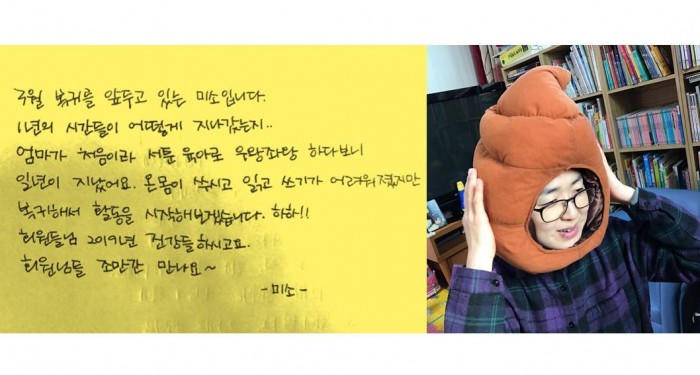 구월 복귀를 앞두고 있는 미소입니다.
1년의 시간들이 어떻게 지나갔는지..
엄마가 처음이라 서툰 육아로 우왕좌왕 하다보니
일년이 지났어요. 온몸이 쑤시고 읽고 쓰기가 어려워졌지만
복귀해서 활동을 시작해보겠습니다. 하하!!
회원들님 2019년 건강들하시고요.
회원님들 조만간 만나요~
-미소-